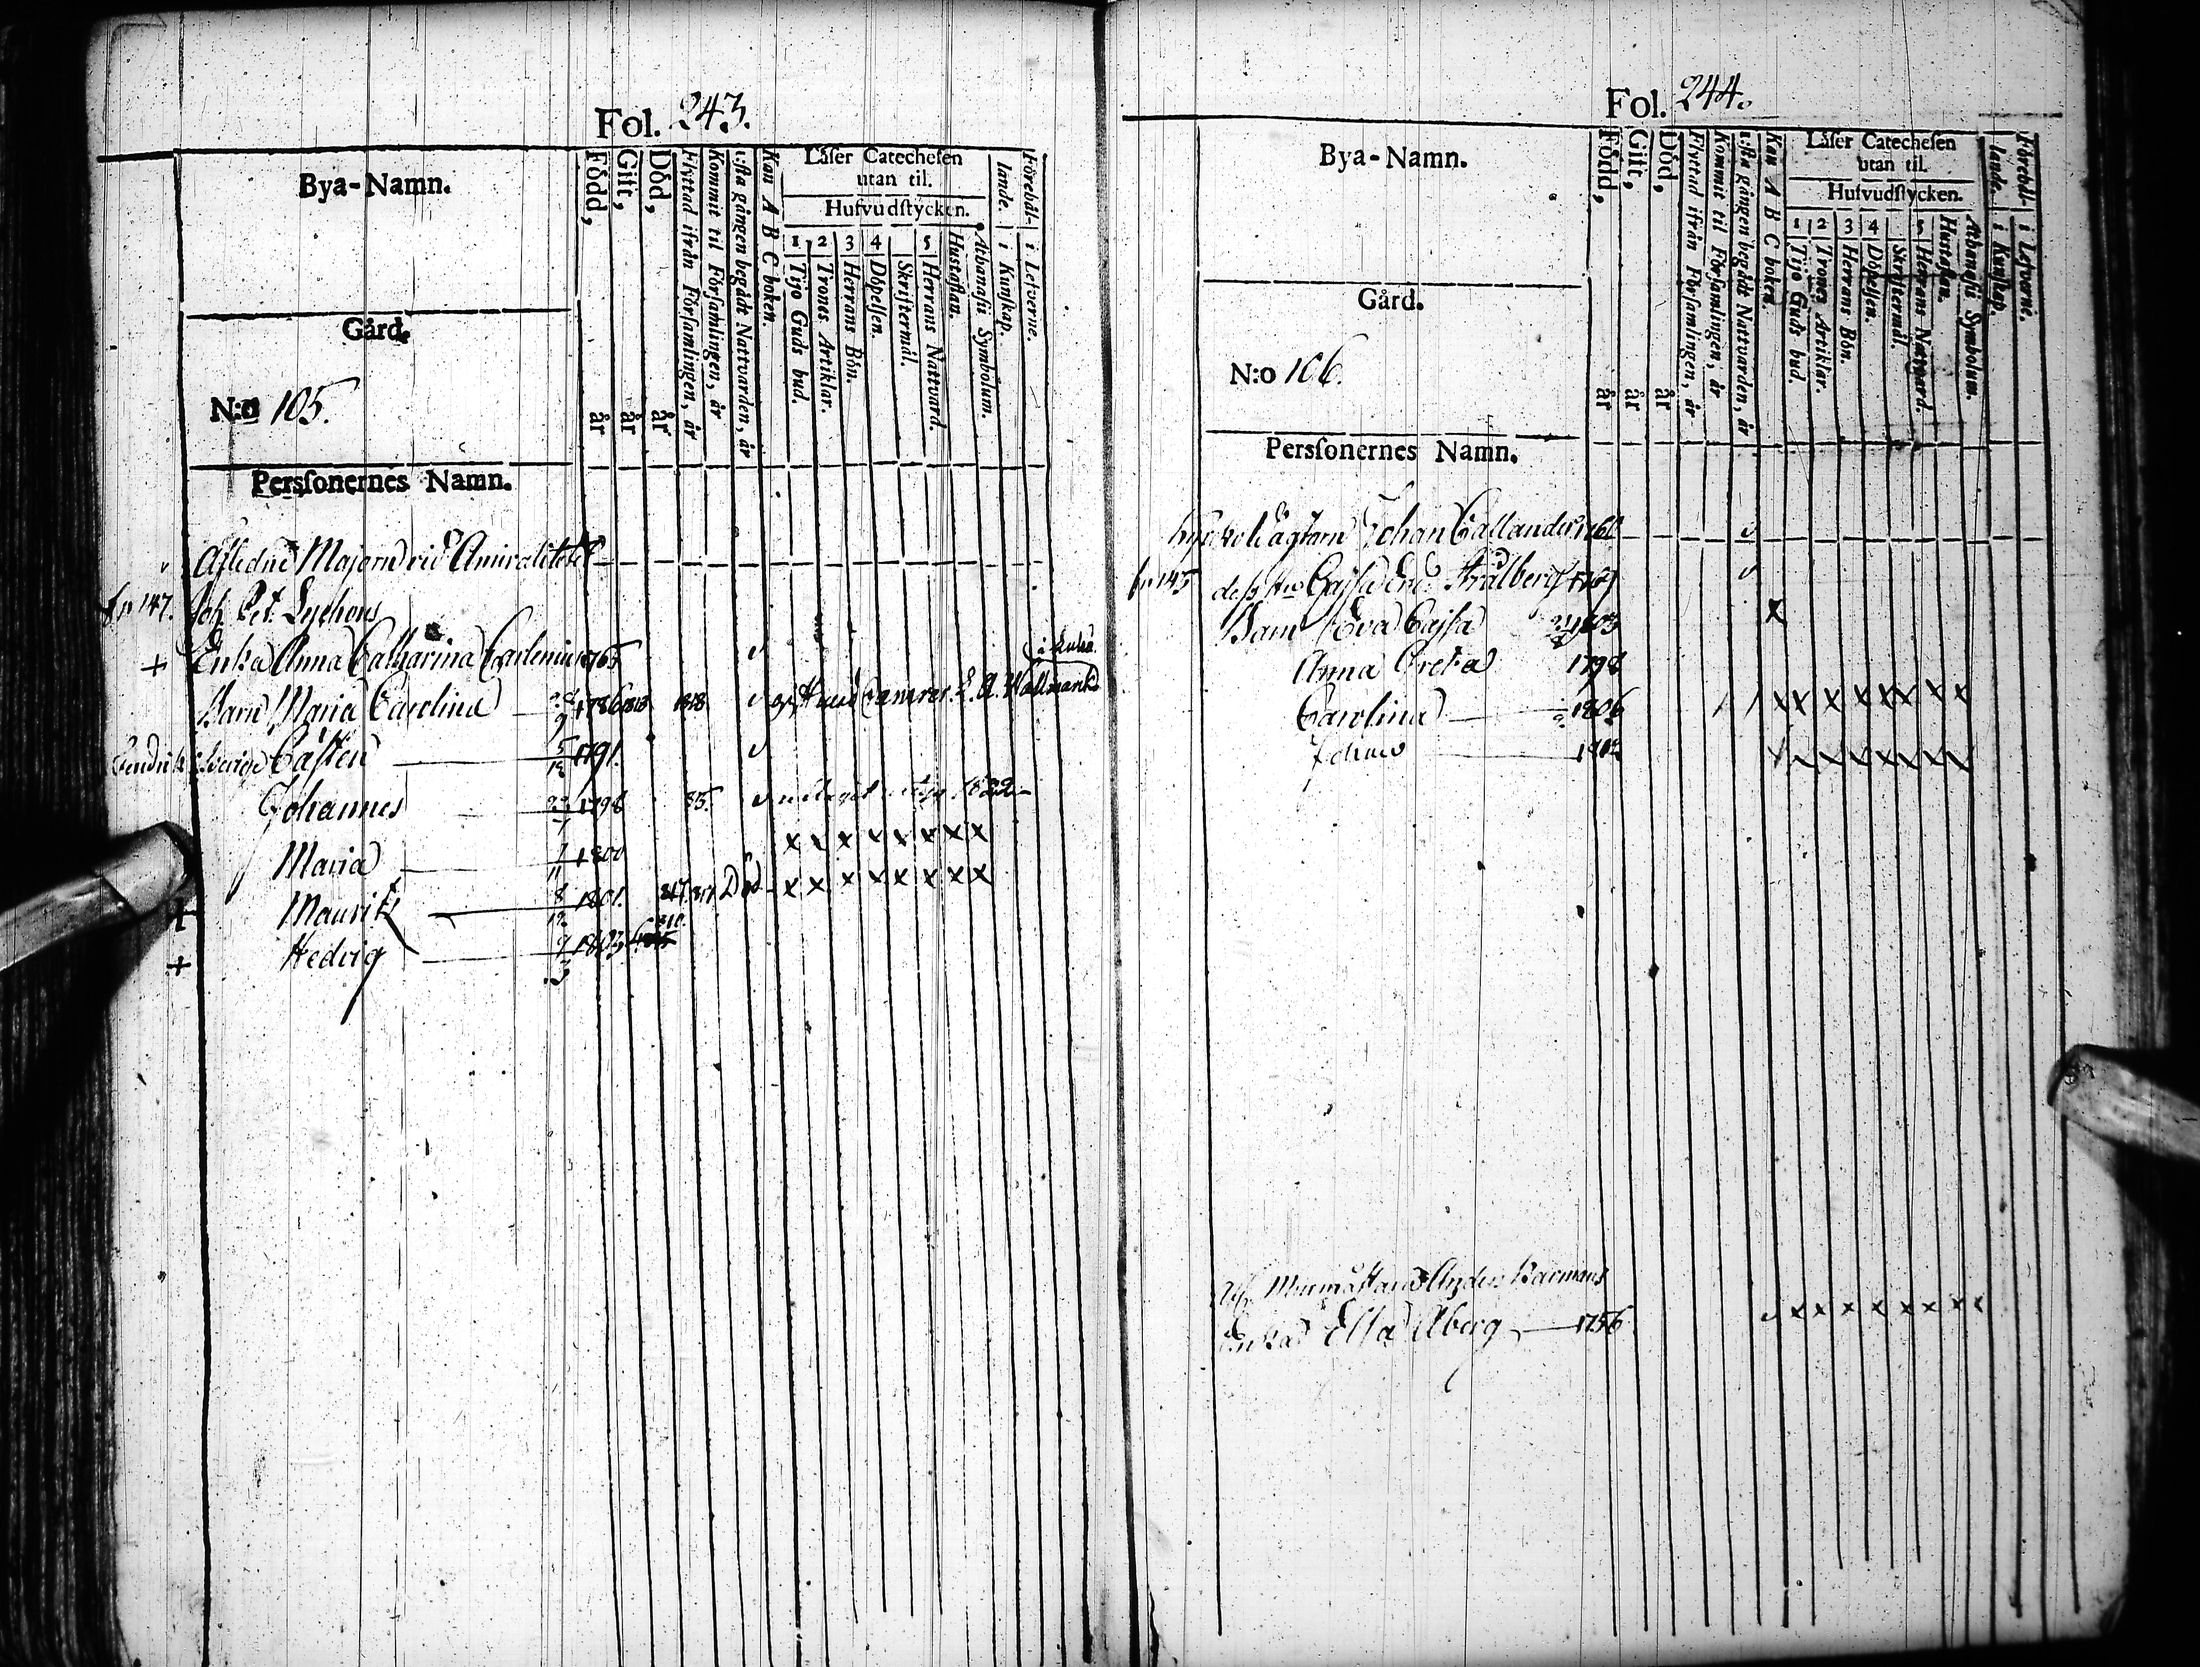 Fol. 243.
Bya-Namn.
Gård.
N:o 105.
Persſonernes Namn.
Född, år
Gift, år
Död, år
Flyttad ifrån Förſamlingen, år
Kommit til Förſamlingen, år
1:ſta gången begådt Nattvarden, år
Kan A B C boken.
Läſer Catecheſen
utan til.
Hufvudſtycken.
1 Tijo Guds bud.
2 Trones Artiklar.
3 Herrans Bön.
4 Döpelſen.
Skriftermål.
5 Herrans Nattvard.
Huſtaflan.
Athanaſii Symbolum.
Förehållande.
i Kunſkap.
i Lefverne.
Aflidne Majoren vid Amiralitetet
fr 147. Joh. Pet. Lychous
+ Enka Anna Catharina Carlenius 1765
Barn Maria Carolina 1786 1818 gift med Camrer. Wallmark
Casten 5/12 1791.
Johannes 1798 35. 1822
Maria 7/11 1800 x x x x x x x x
Maurits 8/12 1801. 817. Död x x x x x x x x
+ Hedvig 9/3 1803 810.
Fol. 244.
Bya-Namn.
Gård.
N:o 106.
Persſonernes Namn.
Född, år
Gift, år
Död, år
Flyttad ifrån Förſamlingen, år
Kommit til Förſamlingen, år
1:ſta gången begådt Nattvarden, år
Kan A B C boken.
Läſer Catecheſen
utan til.
Hufvudſtycken.
1 Tijo Guds bud.
2 Trones Artiklar.
3 Herrans Bön.
4 Döpelſen.
Skriftermål.
5 Herrans Nattvard.
Huſtaflan.
Athanaſii Symbolum.
Förehållande.
i Kunſkap.
i Lefverne.
Johan Callander 176
fr 145 deſs Cajsa Strålberg
Barn Eva Cajsa 1803 x
Anna Greta 1798
Carolina 1806 x x x x x x x x
Johan x x x x x x x
Anders Barmans
Enka Elsa Åberg 1756 x x x x x x x